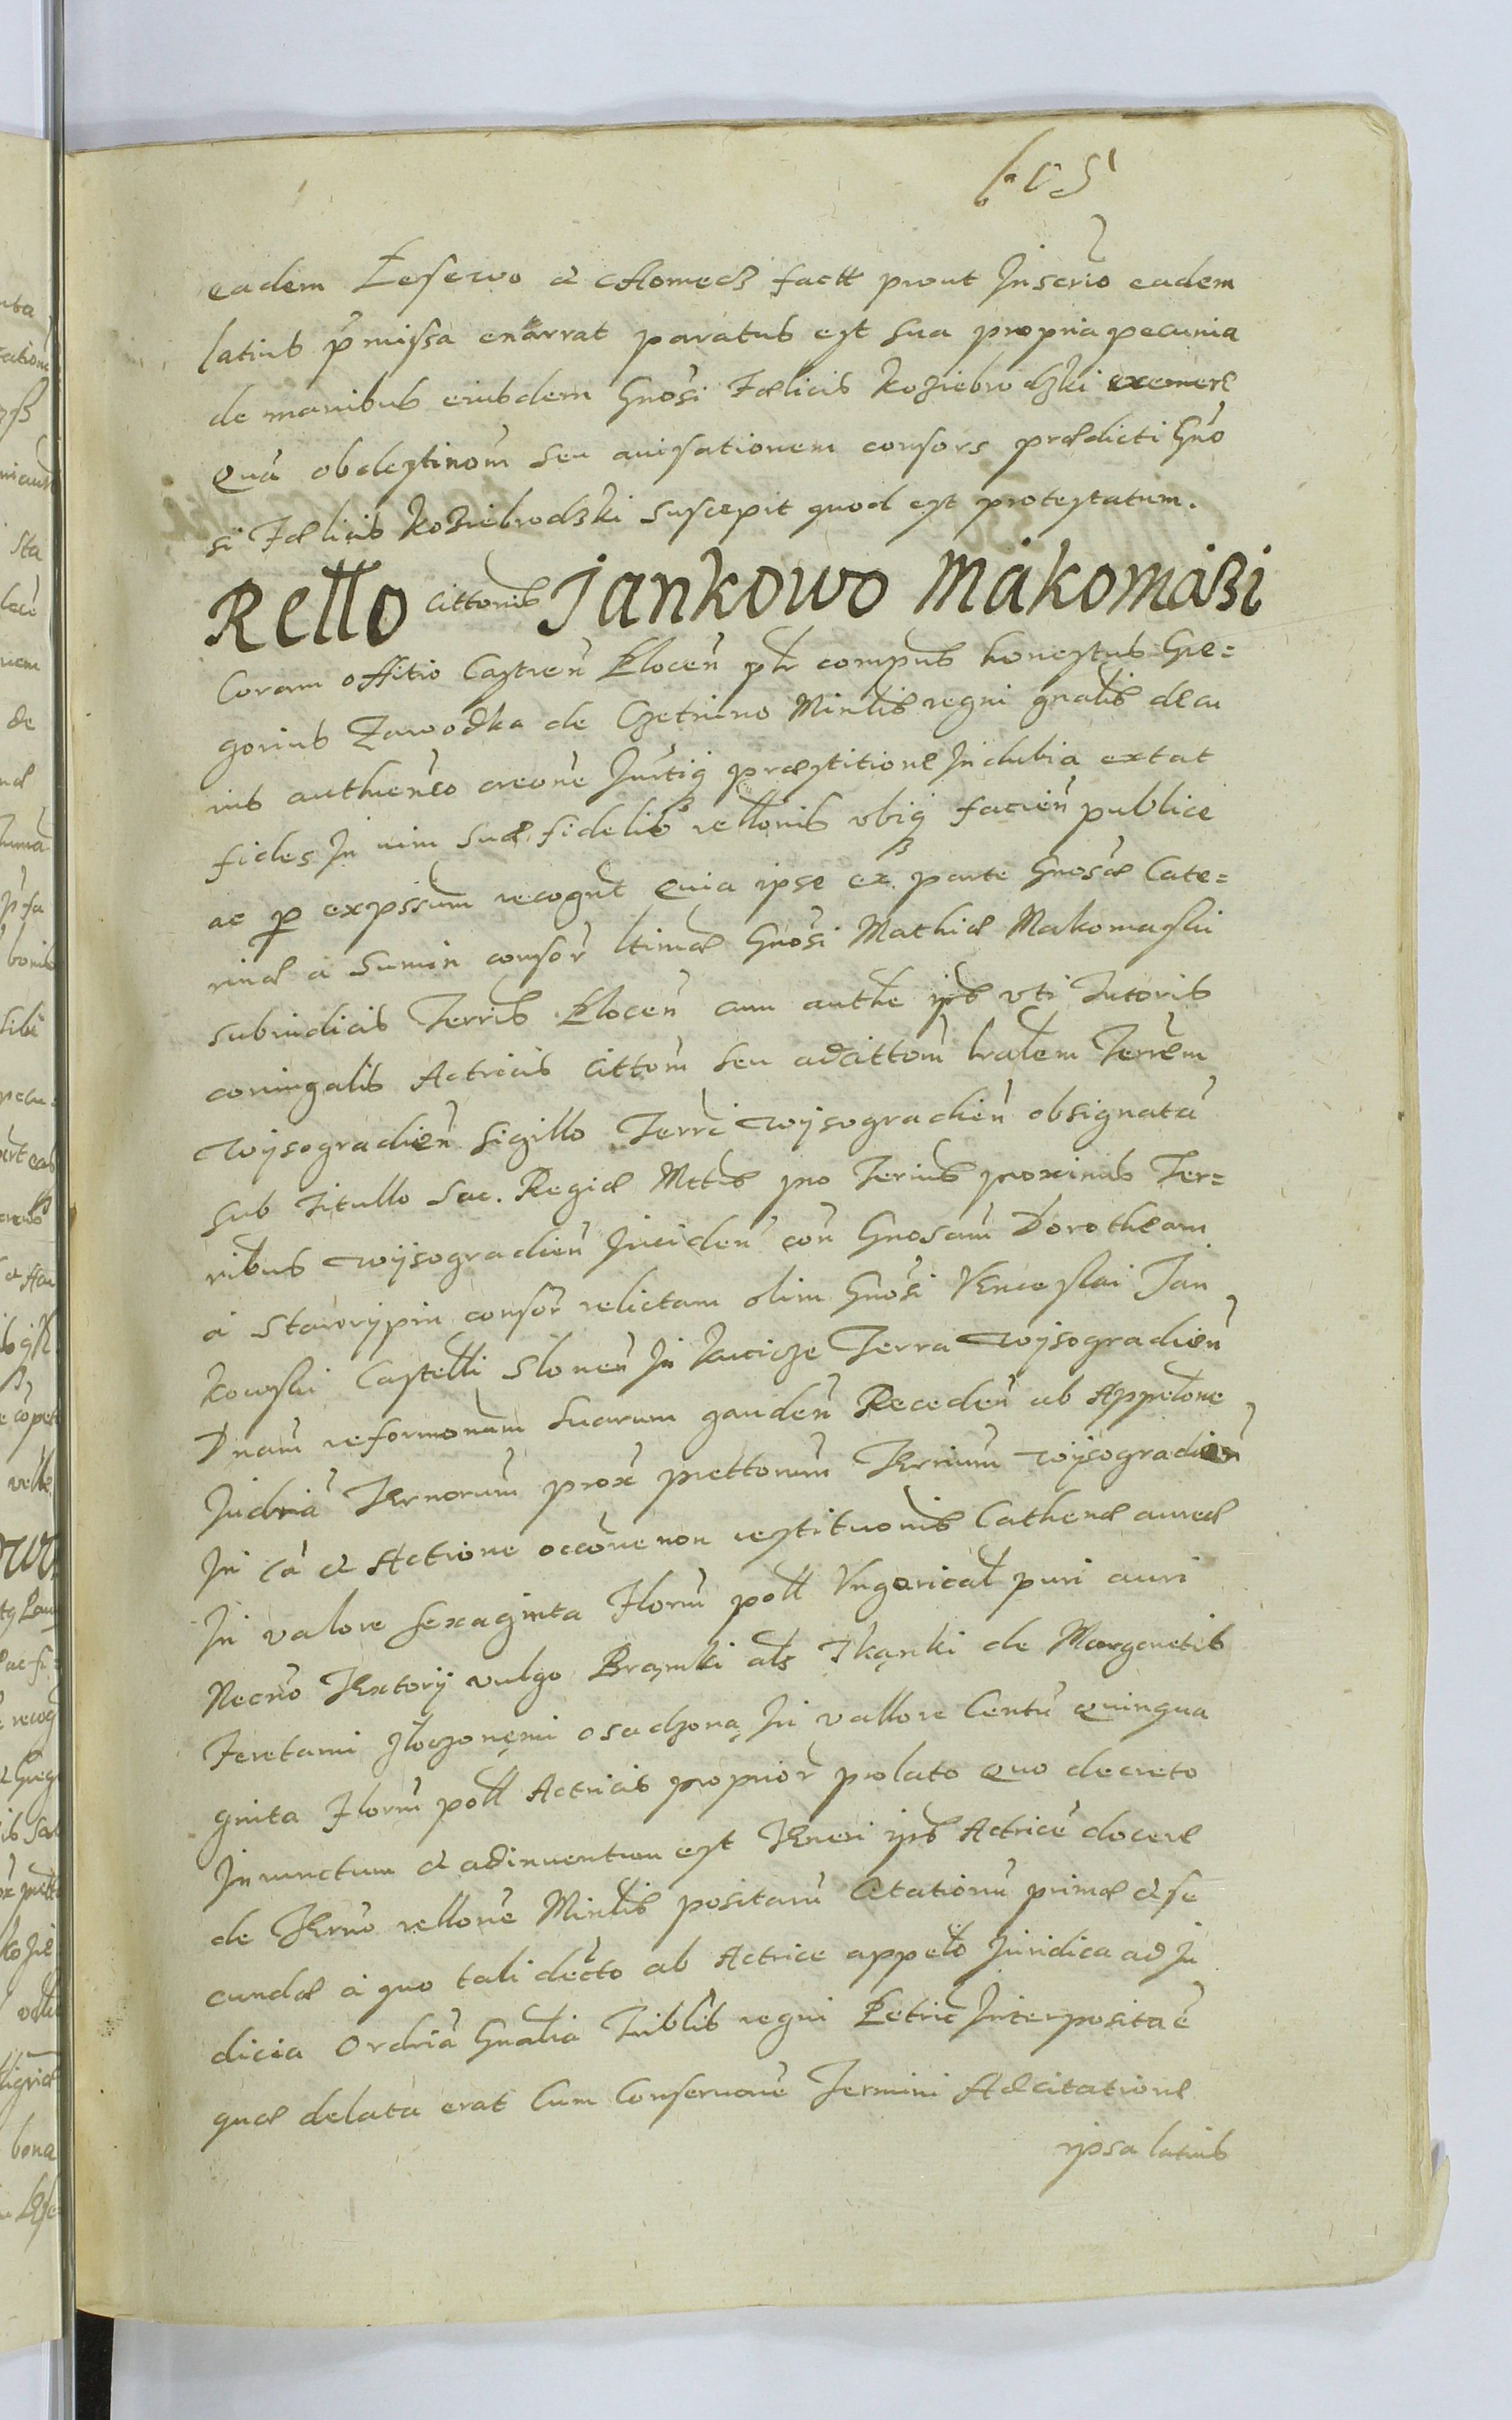 eadem Zeserwo et Homecz factt prout Inscrio eadem
latius pmissa enarrat paratus est sua propria pecunia
de manibus eiusdem Gnosi Fælicis Koziebrodzki exemere
Quā obdestinom̄ seu auisationem consors prædicti Gno
si Fælicis Koziebrodzki suscepit quod est protestatum.
Rello cittonis Jankowo Makomaski
Coram offitio Castren̄ Plocen̄ pltr compns honestus Gre=
gorius Zawodka de Czetnino Minlis regni gnalis de cu
ius authenco creone Iurtiq præstitione Indubia extat
fides In uim suæ fidelis rellonis vbiq facien̄ publice
ac p expssum recognt Quia ipse ex parte Gnosæ Cate=
rinæ a Sumin consor̄ ltimæ Gnosi Mathiæ Makomaski
subiudicis Terris Plocen̄ cum authe ipis vti Tutoris
coniugalis Actricis cittom̄ seu adcittom̄ lralem Terrem
Wysogradien̄ sigillo Terri Wysogradien̄ obsignatā
sub Titullo Sac. Regiæ Mttis pro Terius proximis Ter=
ribus Wysogradien̄ Inciden̄ con̄ Gnosam Dorotheam
a Stawrypin consor̄ relictam olim Gnosi Venceslai Jan
kowski Castelli Slonen̄ In Terra Wysogradien̄
Dnam reformonam suarum gauden̄ Receden̄ ab Appelone
Indriā Ternorum prox prettorum Termium Wysogradien̄
In cā et Actione occone non restituonis Cathenæ aureæ
In valore sexaginta Florm̄ poll Vngarical puri auri
Necno Textory vulgo Bramki als Tkanki de Margaretis
Feretami złoczonęmi osadzoną In vallore Centu quinqua
ginta Florm̄ poll Actricis proprior̄ prolato Quo decreto
Iniunctum et adinuentum est Teneri ips Actrice docere
de Termo rellone Minlis positaru Citationu primæ et se
cundæ a quo tali decto ab Actrice appelo Iuridica ad Iu
dicia Ordria Gnalia Triblis regni Petric Interposita e
quæ delata erat Cum Conseruone Termini Adcitatione
ipsa latius